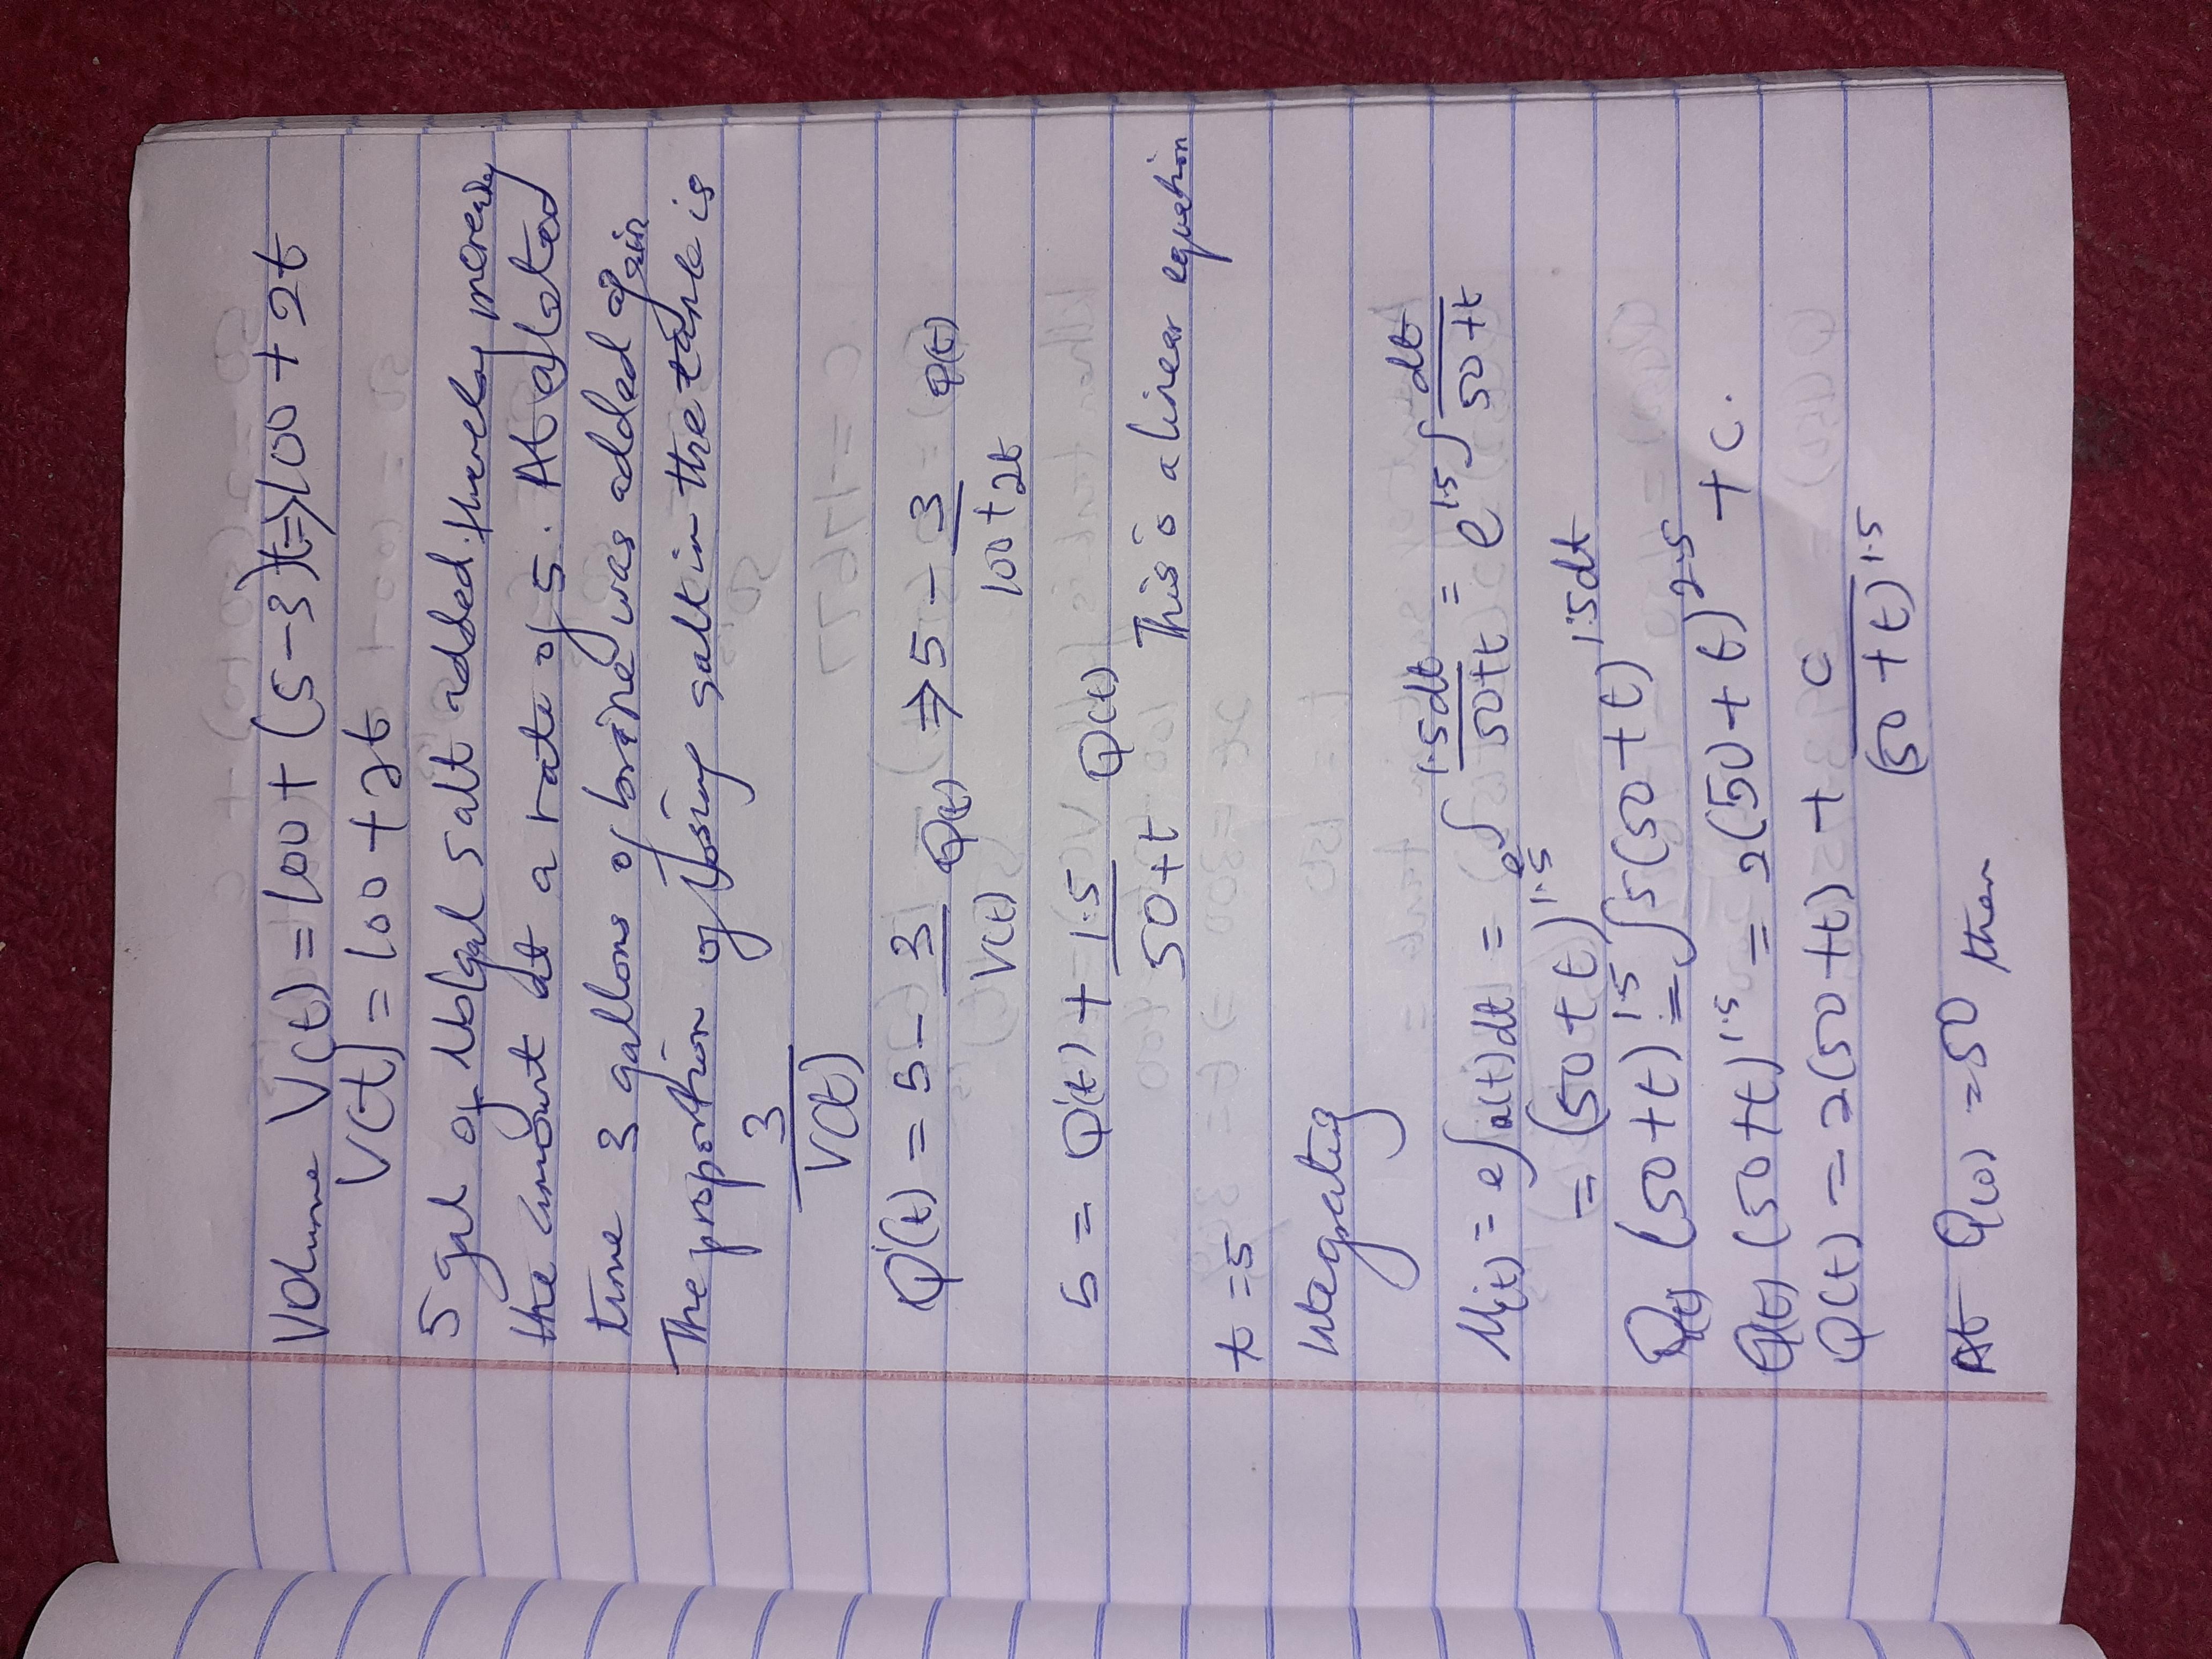 Volume V(t) = 100 + (5-3)t => 100 + 2t
V(t) = 100 + 2t
5 gal of 1lb/gal salt added. thereby
the amount at a rate of 5. At
time 3 gallons of was added again
The proportion of losing salt in the tank is
3
V(t)
Q'(t) = 5 - 3/V(t) Q(t) => 5 - 3/100+2t Q(t)
5 = Q'(t) + 1.5/50+t Q(t) This is a linear equation
t = 5
Integrating
μ(t) = e∫a(t)dt = e∫ 1.5dt/50+t = e^1.5∫ dt/50+t
= (50+t)^1.5
Q(t) (50+t)^1.5 = ∫5(50+t)^1.5 dt
Q(t) (50+t)^1.5 = 2(50+t)^2.5 + C.
Q(t) = 2(50+t) + C/(50+t)^1.5
At Q(0) = 50 then